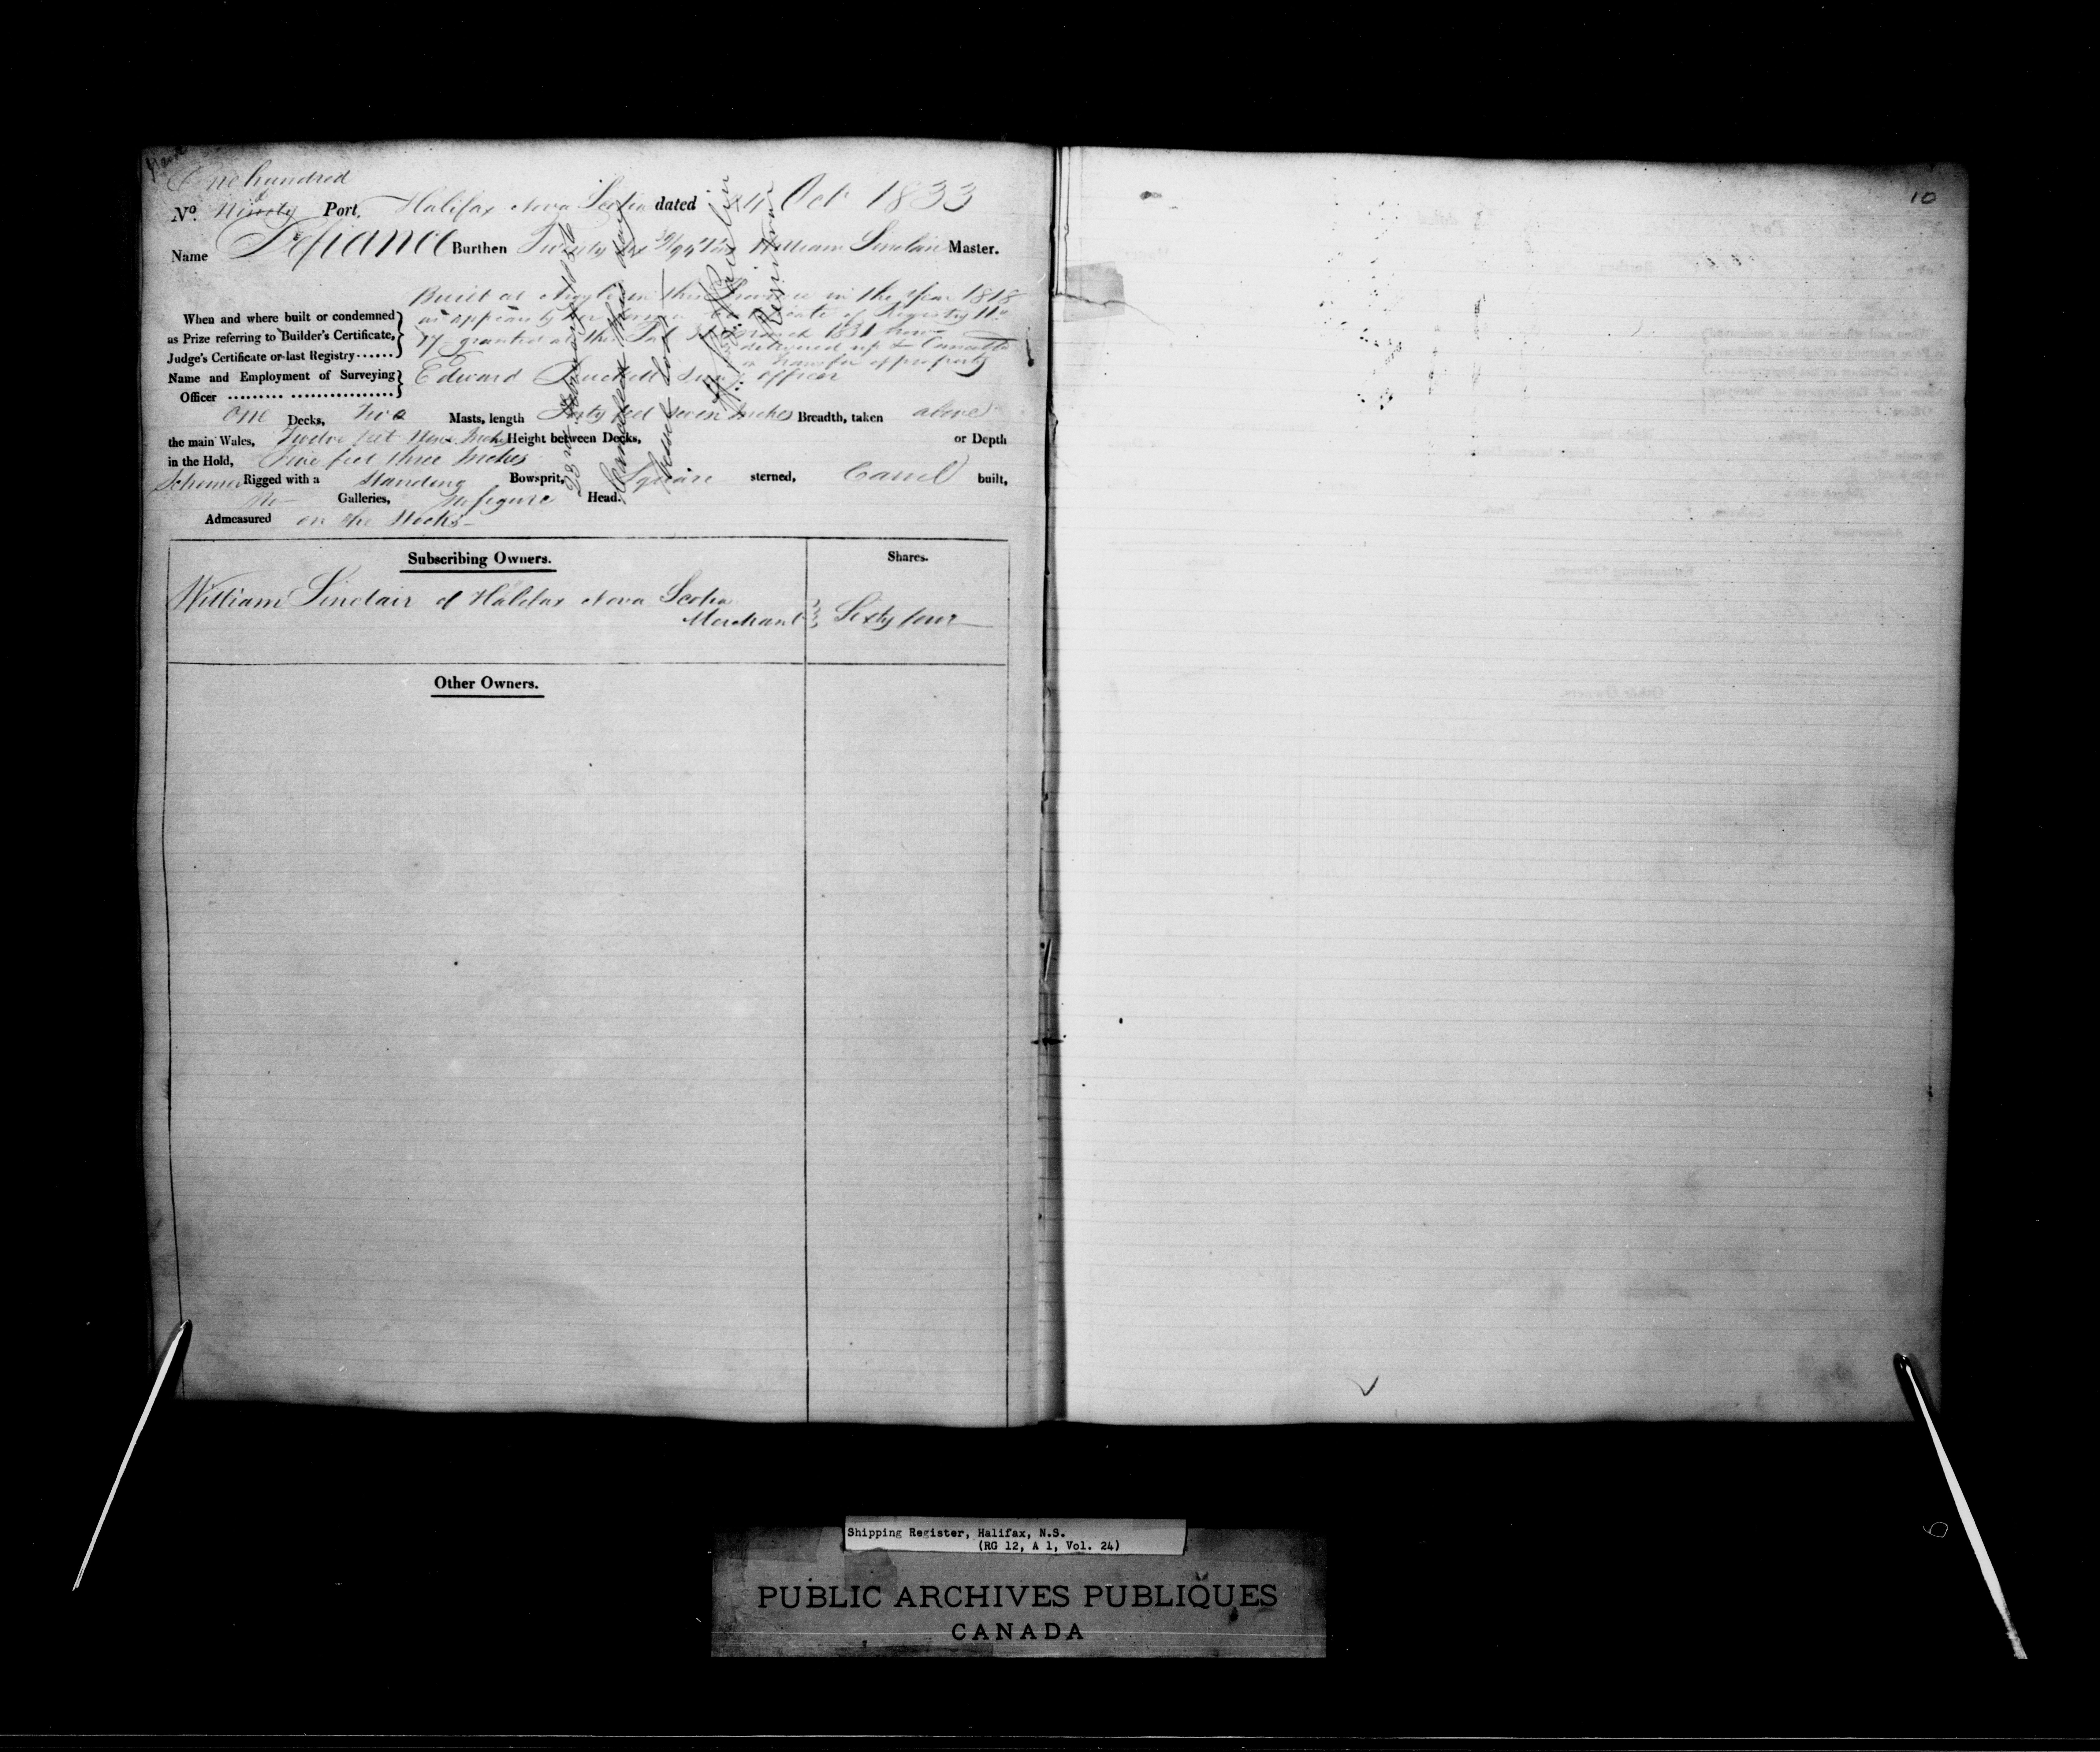 One hundred
No. Ninety Port, Halifax Nova Scotia dated 24 Oct 1833
Name Defiance Burthen Twenty six Tons William Sinclair Master.
Built at Argyle in this Province in the Year 1818
When and where built or condemned
as Prize referring to Builder's Certificate,
Judge's Certificate or last Registry
as appears by Certificate of Registry No.
granted at this Port March 1831 now
delivered up & Cancelled
transfer of property
Name and Employment of Surveying
Officer
Edward officer
One Decks, Two Masts, length Forty feet seven Inches Breadth, taken above
the main Wales, Twelve feet Nine Inches Height between Decks, or Depth
in the Hold, Five feet three Inches
Schooner Rigged with a Standing Bowsprit, Square sterned, Carvel built,
No Galleries, No figure Head.
Admeasured on the Stocks
Cancelled this day
Vessel lost
Registrar
Subscribing Owners. Shares.
William Sinclair of Halifax Nova Scotia
Merchant Sixty four
Other Owners.
10
Shipping Register, Halifax, N.S.
(RG 12, A 1, Vol. 24)
PUBLIC ARCHIVES PUBLIQUES
CANADA